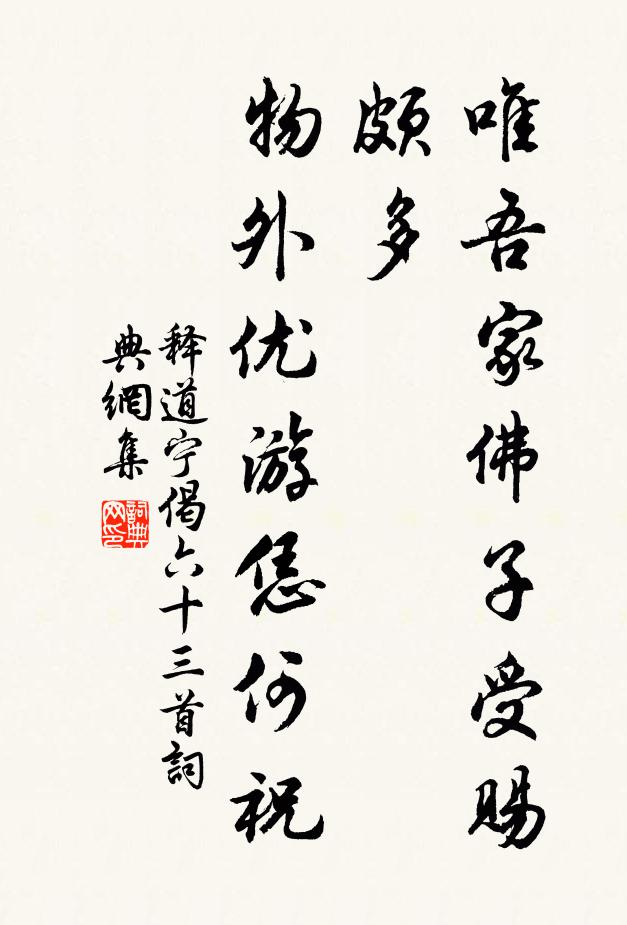 唯吾家佛子受赐
颇多
物外优游恁何祝
释道宁偈六十三首詞
典網集
詞典网印